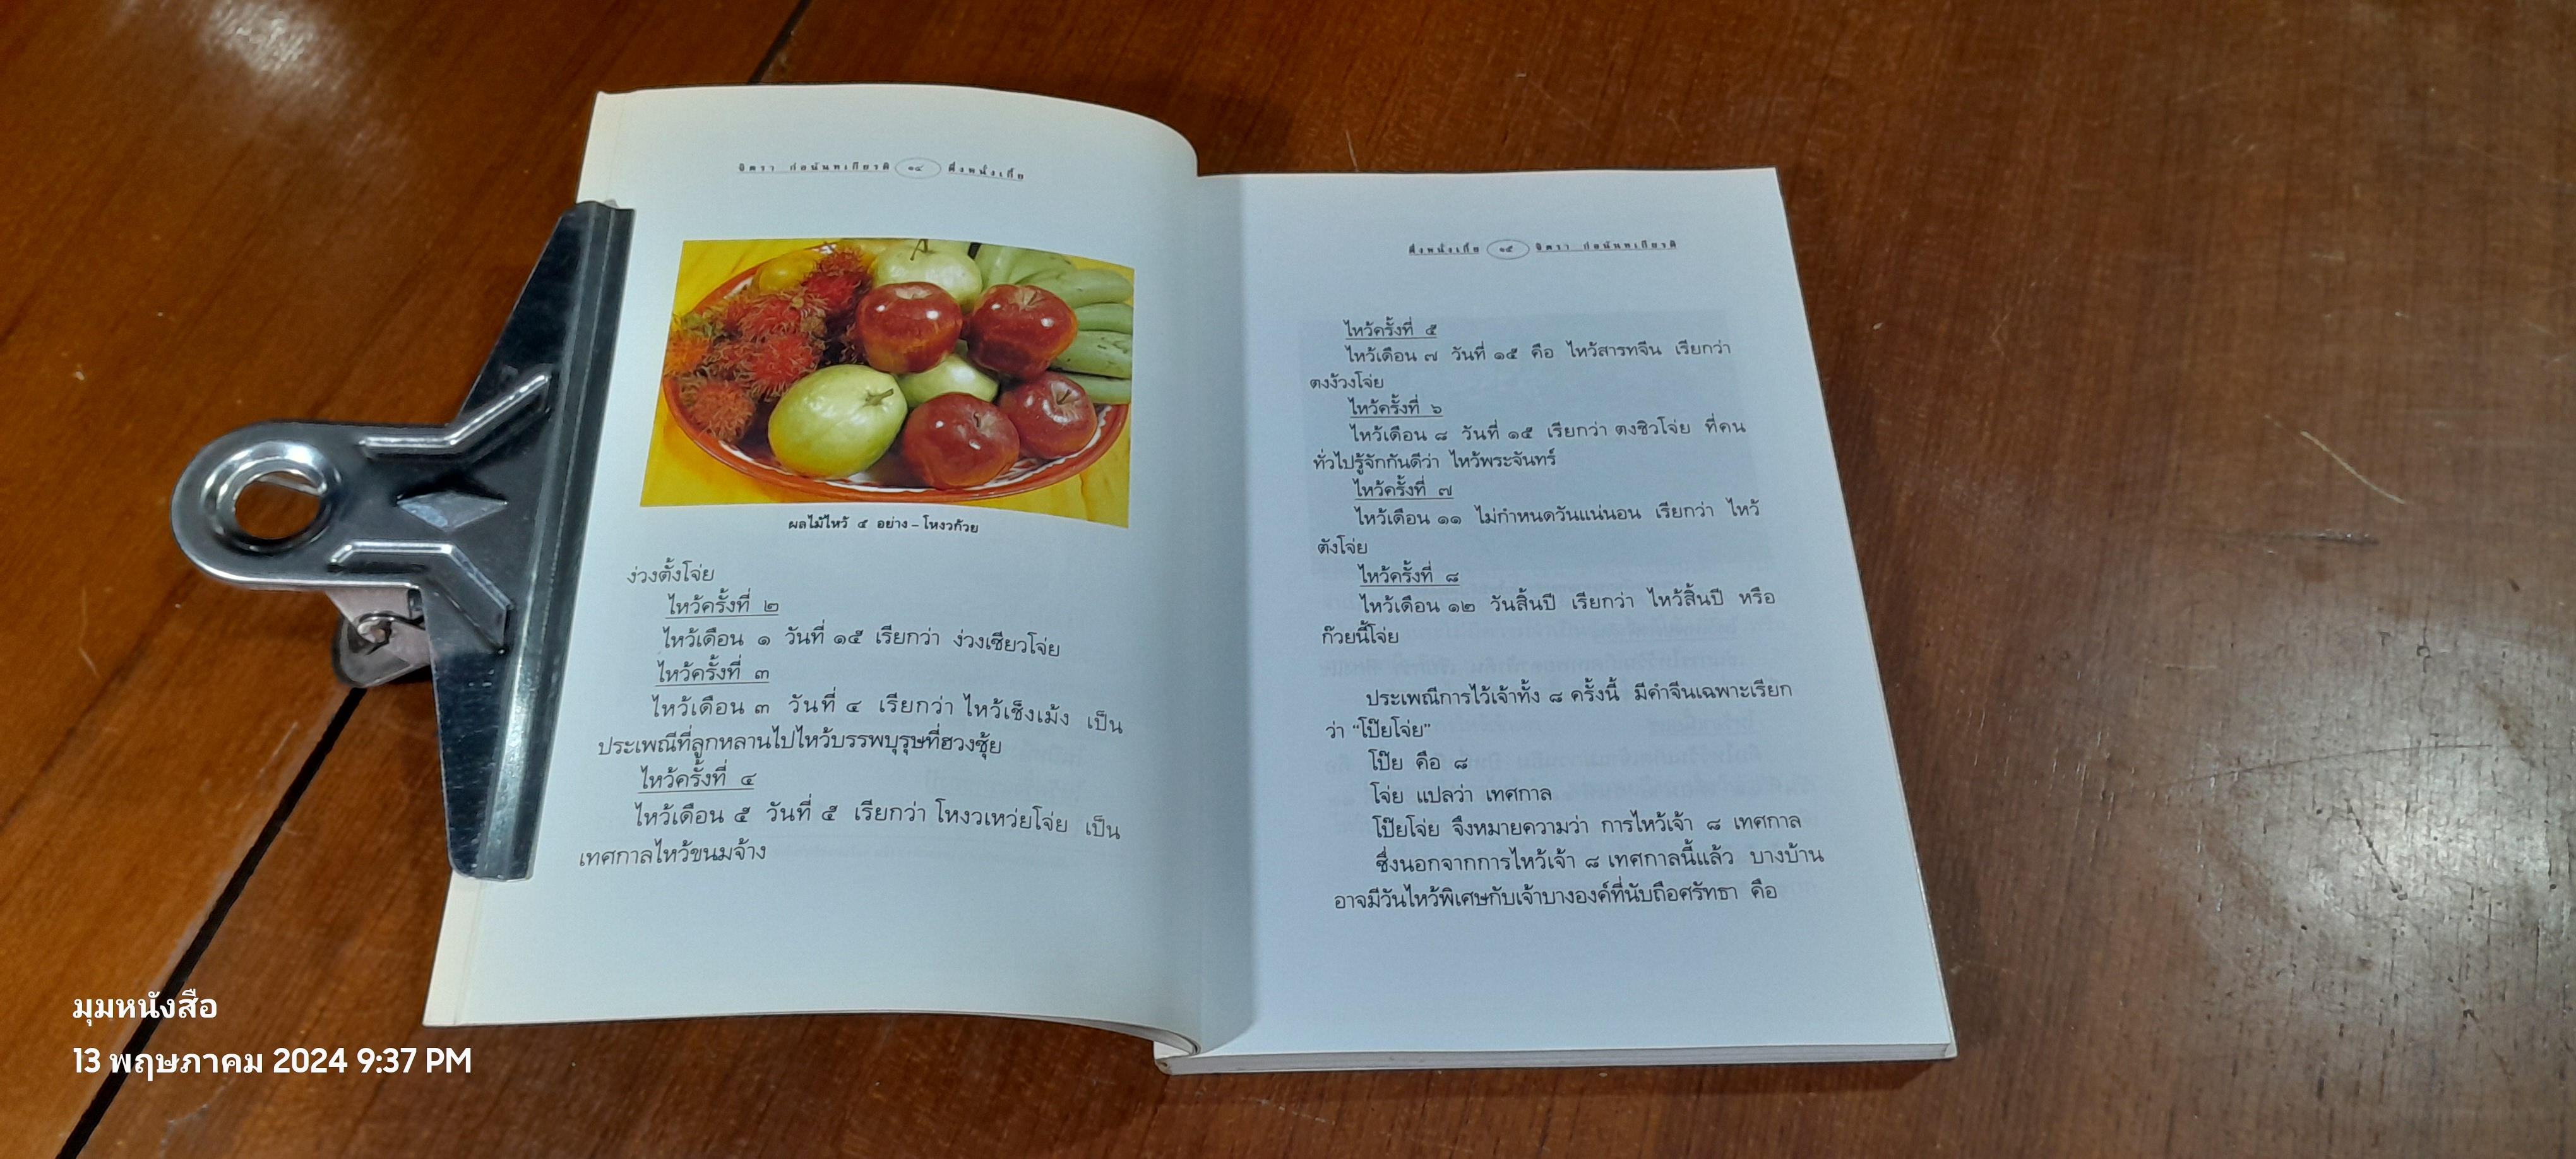 จิตรา ก่อนันทเกียรติ ๑๔ ตึ่งหนั่งเกี้ย
ผลไม้ไหว้ ๕ อย่าง – โหงวก้วย
ง่วงตั้งโจ่ย
ไหว้ครั้งที่ ๒
ไหว้เดือน ๑ วันที่ ๑๕ เรียกว่า ง่วงเซียวโจ่ย
ไหว้ครั้งที่ ๓
ไหว้เดือน ๓ วันที่ ๔ เรียกว่า ไหว้เช็งเม้ง เป็น
ประเพณีที่ลูกหลานไปไหว้บรรพบุรุษที่ฮวงซุ้ย
ไหว้ครั้งที่ ๔
ไหว้เดือน ๕ วันที่ ๕ เรียกว่า โหงวเหว่ยโจ่ย เป็น
เทศกาลไหว้ขนมจ้าง
ตึ่งหนั่งเกี้ย ๑๕ จิตรา ก่อนันทเกียรติ
ไหว้ครั้งที่ ๕
ไหว้เดือน ๗ วันที่ ๑๕ คือ ไหว้สารทจีน เรียกว่า
ตงง้วงโจ่ย
ไหว้ครั้งที่ ๖
ไหว้เดือน ๘ วันที่ ๑๕ เรียกว่า ตงชิวโจ่ย ที่คน
ทั่วไปรู้จักกันดีว่า ไหว้พระจันทร์
ไหว้ครั้งที่ ๗
ไหว้เดือน ๑๑ ไม่กำหนดวันแน่นอน เรียกว่า ไหว้
ตังโจ่ย
ไหว้ครั้งที่ ๘
ไหว้เดือน ๑๒ วันสิ้นปี เรียกว่า ไหว้สิ้นปี หรือ
ก๊วยนี้โจ่ย
ประเพณีการไว้เจ้าทั้ง ๘ ครั้งนี้ มีคำจีนเฉพาะเรียก
ว่า “โป๊ยโจ่ย”
โป๊ย คือ ๘
โจ่ย แปลว่า เทศกาล
โป๊ยโจ่ย จึงหมายความว่า การไหว้เจ้า ๘ เทศกาล
ซึ่งนอกจากการไหว้เจ้า ๘ เทศกาลนี้แล้ว บางบ้าน
อาจมีวันไหว้พิเศษกับเจ้าบางองค์ที่นับถือศรัทธา คือ
มุมหนังสือ
13 พฤษภาคม 2024 9:37 PM